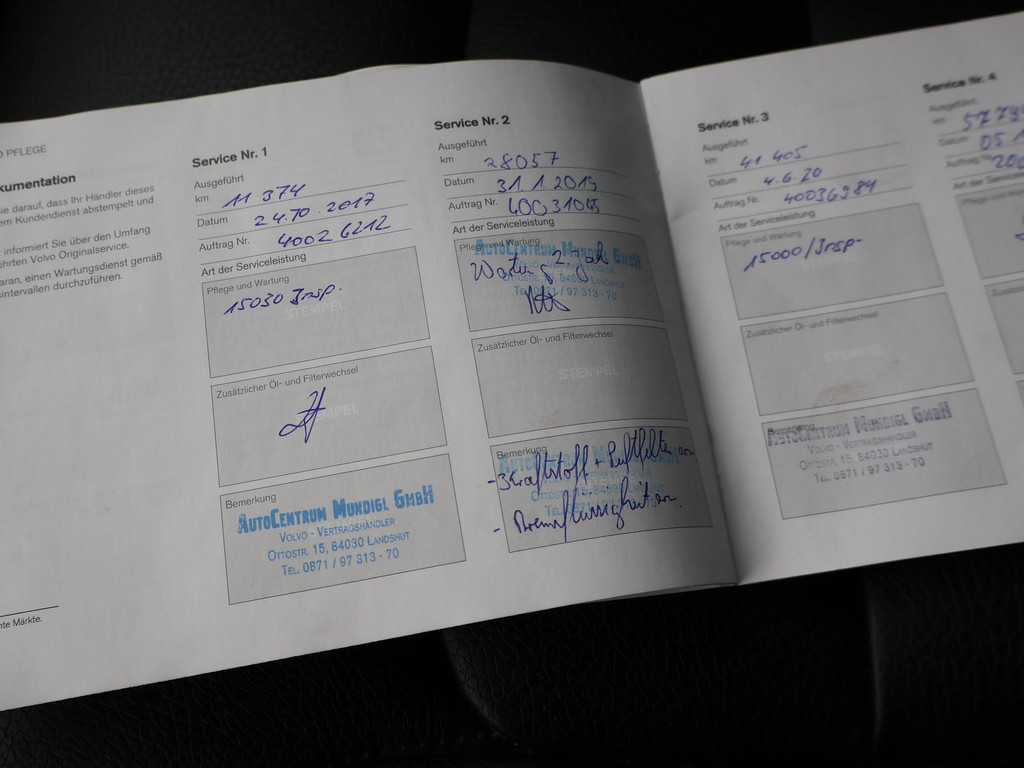 PFLEGE
kumentation
ie darauf, dass Ihr Händler dieses
em Kundendienst abstempelt und
informiert Sie über den Umfang
ührten Volvo Originalservice.
aran, einen Wartungsdienst gemäß
intervallen durchzuführen.
nte Märkte.
Service Nr. 1
Ausgeführt
km 11 374
Datum 24.10.2017
Auftrag Nr. 40026212
Art der Serviceleistung
Pflege und Wartung
15030 Insp.
STEMPEL
Zusätzlicher Öl- und Filterwechsel
STEMPEL
Bemerkung
AUTOCENTRUM MUNDIGL GMBH
VOLVO - VERTRAGSHÄNDLER
OTTOSTR. 15, 84030 LANDSHUT
TEL. 0871 / 97 313 - 70
Service Nr. 2
Ausgeführt
km 28057
Datum 31.1.2019
Auftrag Nr.
Art der Serviceleistung
Pflege und Wartung
AUTOCENTRUM MUNDIGL GMBH
OTTOSTR. LANDSHUT
TEL. 0871 / 97 313 - 70
Zusätzlicher Öl- und Filterwechsel
STEMPEL
Bemerkung
- Kraftstoff + Luftfilter
- Bremsflüssigkeit
Service Nr. 3
Ausgeführt
km 41 405
Datum 4.6.20
Auftrag Nr. 40036984
Art der Serviceleistung
Pflege und Wartung
15000/Insp.
Zusätzlicher Öl- und Filterwechsel
STEMPEL
Bemerkung
AUTOCENTRUM MUNDIGL GMBH
VOLVO - VERTRAGSHÄNDLER
OTTOSTR. 15, 84030 LANDSHUT
TEL. 0871 / 97 313 - 70
Service Nr. 4
Ausgeführt
km 5779
Datum 05.1
Auftrag Nr. 200
Art der Servicele
Pflege und Wartu
Zusätzliche